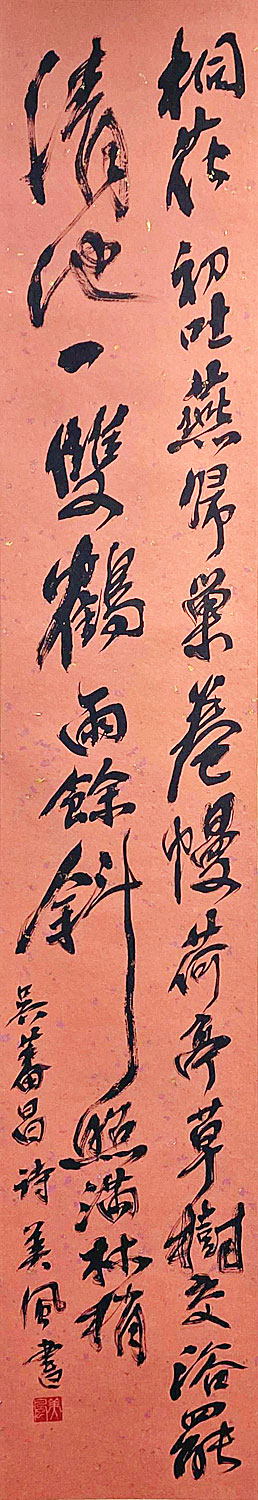 桐花初吐燕歸巢卷幔荷亭草樹交浴罷
清池一雙鶴雨餘斜照滿林梢
吳蕃昌詩美風書